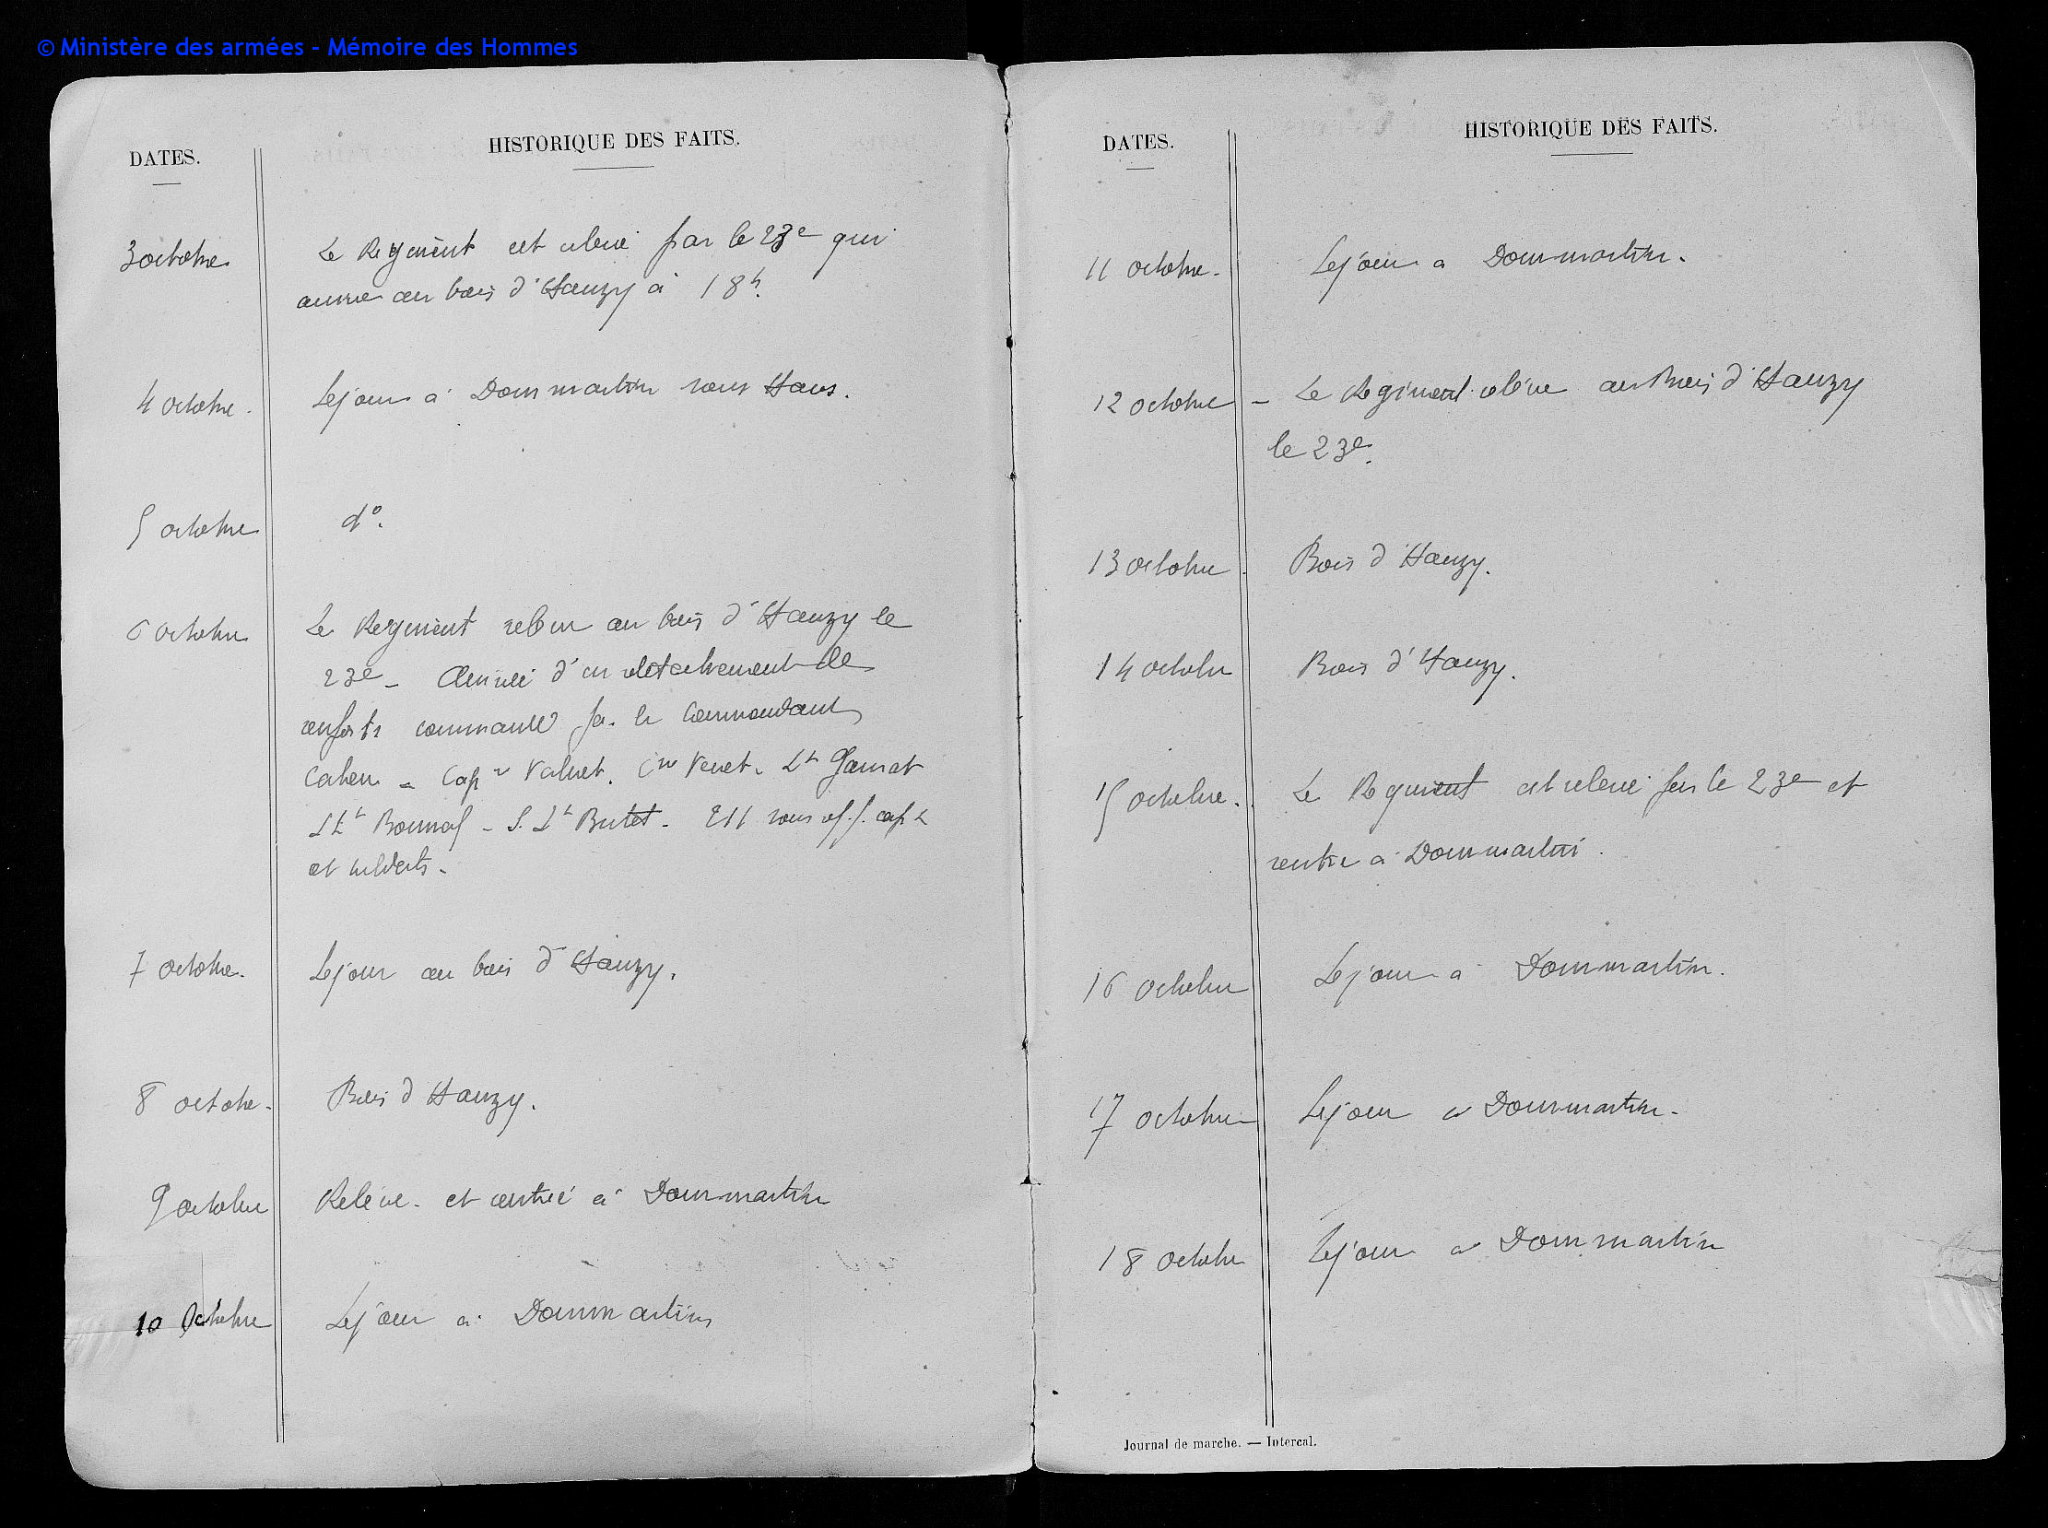 © Ministère des armées - Mémoire des Hommes
DATES.
HISTORIQUE DES FAITS.
3 octobre
Le Régiment est relevé par le 23e qui
arrive au bois d'Hauzy à 18h.
4 octobre.
Séjour à Dommartin sous Hans.
5 octobre
d°.
6 octobre
Le Régiment relève au bois d'Hauzy le
23e - Arrivée d'un détachement de
renforts commandé par le Commandant
Cahen - Capne Valnet. Lt
Lt - S. Lt Butet. 211 sous off. cap x
et soldats.
7 octobre.
Séjour au bois d'Hauzy.
8 octobre.
Bois d'Hauzy.
9 octobre
Relève. et rentrée à Dommartin
10 Octobre
Séjour à Dommartin
DATES.
HISTORIQUE DES FAITS.
11 octobre.
Séjour à Dommartin.
12 octobre -
Le Régiment relève au Bois d'Hauzy
le 23e.
13 octobre.
Bois d'Hauzy.
14 octobre
Bois d'Hauzy.
15 octobre.
Le Régiment est relevé par le 23e et
rentre à Dommartin.
16 octobre
Séjour à Dommartin.
17 octobre
Séjour à Dommartin.
18 octobre
Séjour à Dommartin
Journal de marche. — Intercal.